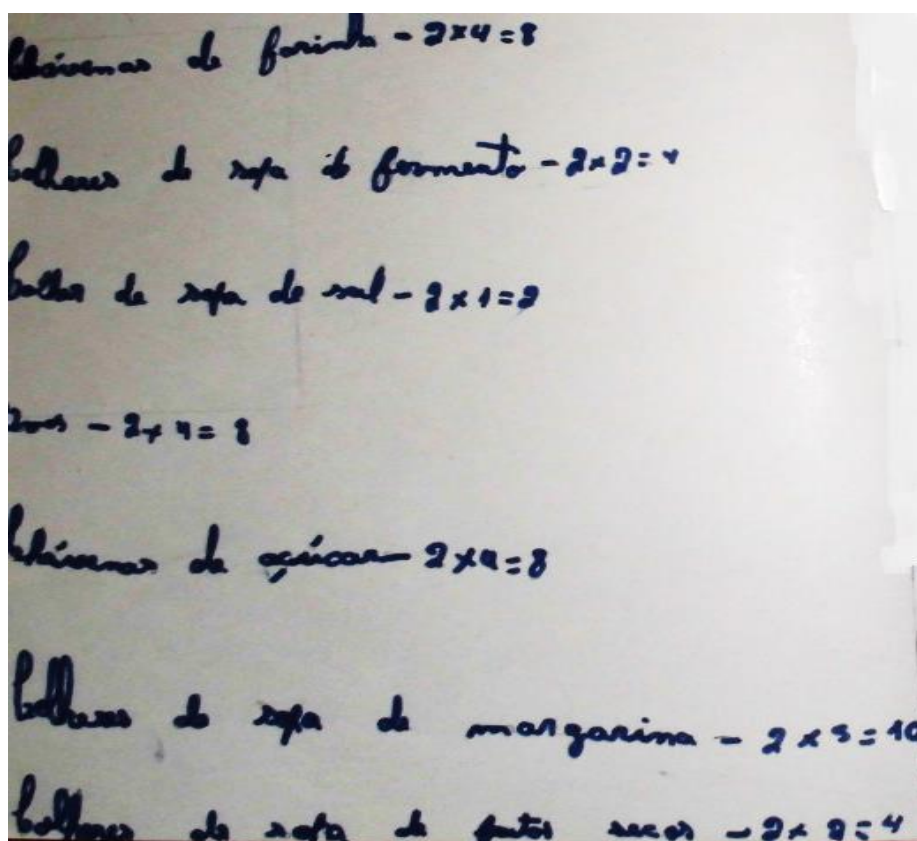 Chávenas de farinha - 2x4=8
Colheres de sopa de fermento - 2x2=4
Colher de sopa de sal - 2x1=2
Ovos - 2x4=8
Chávenas de açúcar - 2x4=8
Colheres de sopa de margarina - 2x5=10
Colheres de sopa de frutos secos - 2x2=4